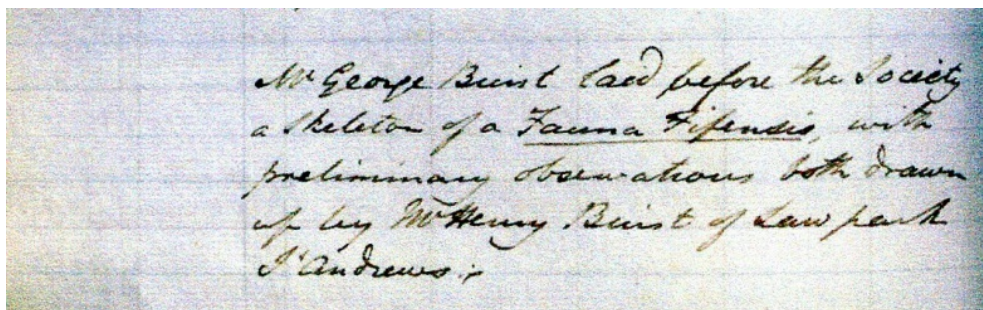 Mr George Buist laid before the Society
a Skeleton of a Fauna Fifensis, with
preliminary observations both drawn
up by Mr Henry Buist of Law park
St Andrews :